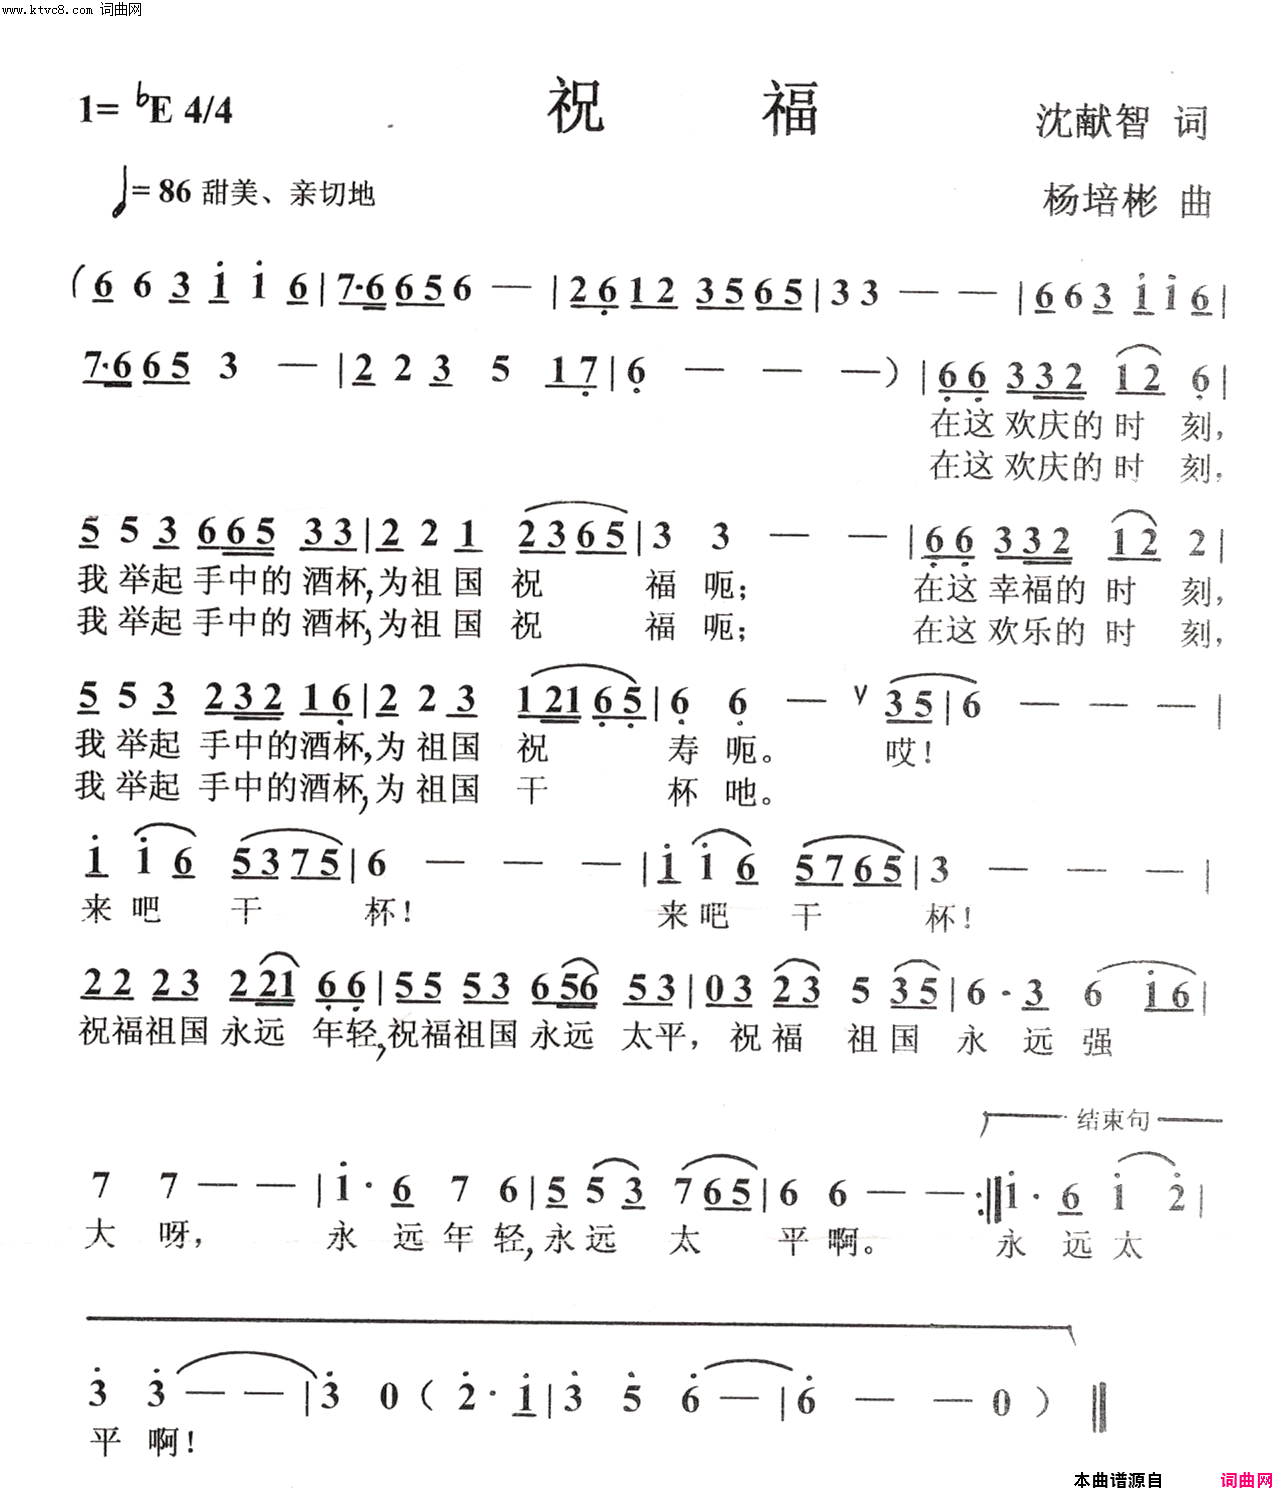 www.ktvc8.com 词曲网
祝 福
1= ♭E 4/4
沈献智 词
♩= 86 甜美、亲切地
杨培彬 曲
( 6 6 3 i i 6 | 7·6 6 5 6 — | 2 6 1 2 3 5 6 5 | 3 3 — — | 6 6 3 i i 6 |
7·6 6 5 3 — | 2 2 3 5 1 7 | 6 — — — ) | 6 6 3 3 2 1 2 6 |
在这 欢庆的 时 刻,
在这 欢庆的 时 刻.
5 5 3 6 6 5 3 3 | 2 2 1 2 3 6 5 | 3 3 — — | 6 6 3 3 2 1 2 2 |
我 举起 手中的 酒杯,为祖 国 祝 福 呃; 在这 幸福的 时 刻,
我 举起 手中的 酒杯,为祖 国 祝 福 呃; 在这 欢乐的 时 刻,
5 5 3 2 3 2 1 6 | 2 2 3 1 2 1 6 5 | 6 6 — ∨ 3 5 | 6 — — — |
我 举起 手中的酒杯,为 祖国 祝 寿 呃。 哎!
我 举起 手中的酒杯,为 祖国 干 杯 吔。
i i 6 5 3 7 5 | 6 — — — | i i 6 5 7 6 5 | 3 — — — |
来 吧 干 杯! 来 吧 干 杯!
2 2 2 3 2 2 1 6 6 | 5 5 5 3 6 5 6 5 3 | 0 3 2 3 5 3 5 | 6 · 3 6 i 6 |
祝福祖国 永远 年轻,祝福祖国 永远 太平, 祝 福 祖 国 永 远 强
结束句
7 7 — — | i · 6 7 6 | 5 5 3 7 6 5 | 6 6 — — :‖ i · 6 i 2 |
大 呀, 永 远 年 轻,永 远 太 平 啊。 永 远 太
3 3 — — | 3 0 ( 2 · i | 3 5 6 — | 6 — — 0 ) ‖
平 啊!
本曲谱源自 词曲网